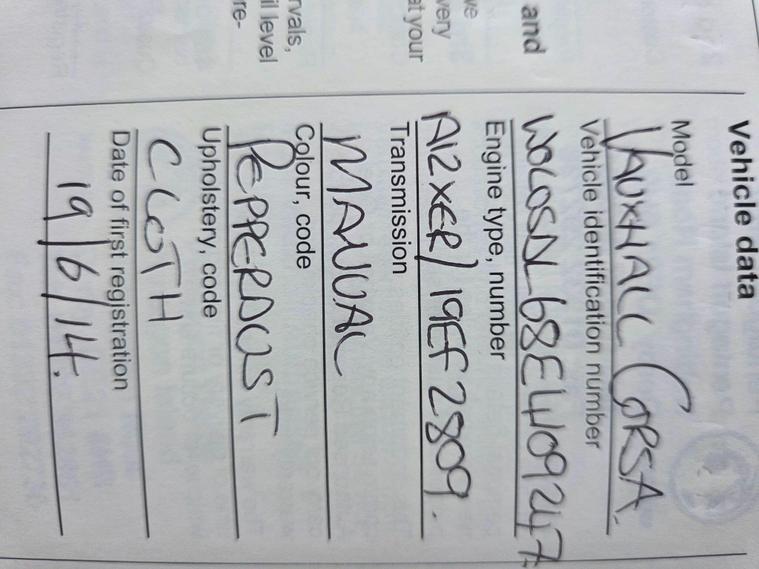 and
we
very
at your
rvals,
il level
re-
Vehicle data
Model
VAUXHALL CORSA.
Vehicle identification number
W0L0SDL68E4109247
Engine type, number
A12XER/19EF2809.
Transmission
MANUAL
Colour, code
PEPPERDUST
Upholstery, code
CLOTH
Date of first registration
19/6/14.